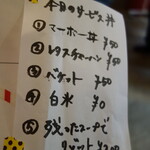 本日のサービス丼
① マーボー丼 ¥50
② レタスチャーハン ¥50
③ バケット ¥50
④ 白米 ¥0
⑤ 残ったスープで
リゾット ¥200